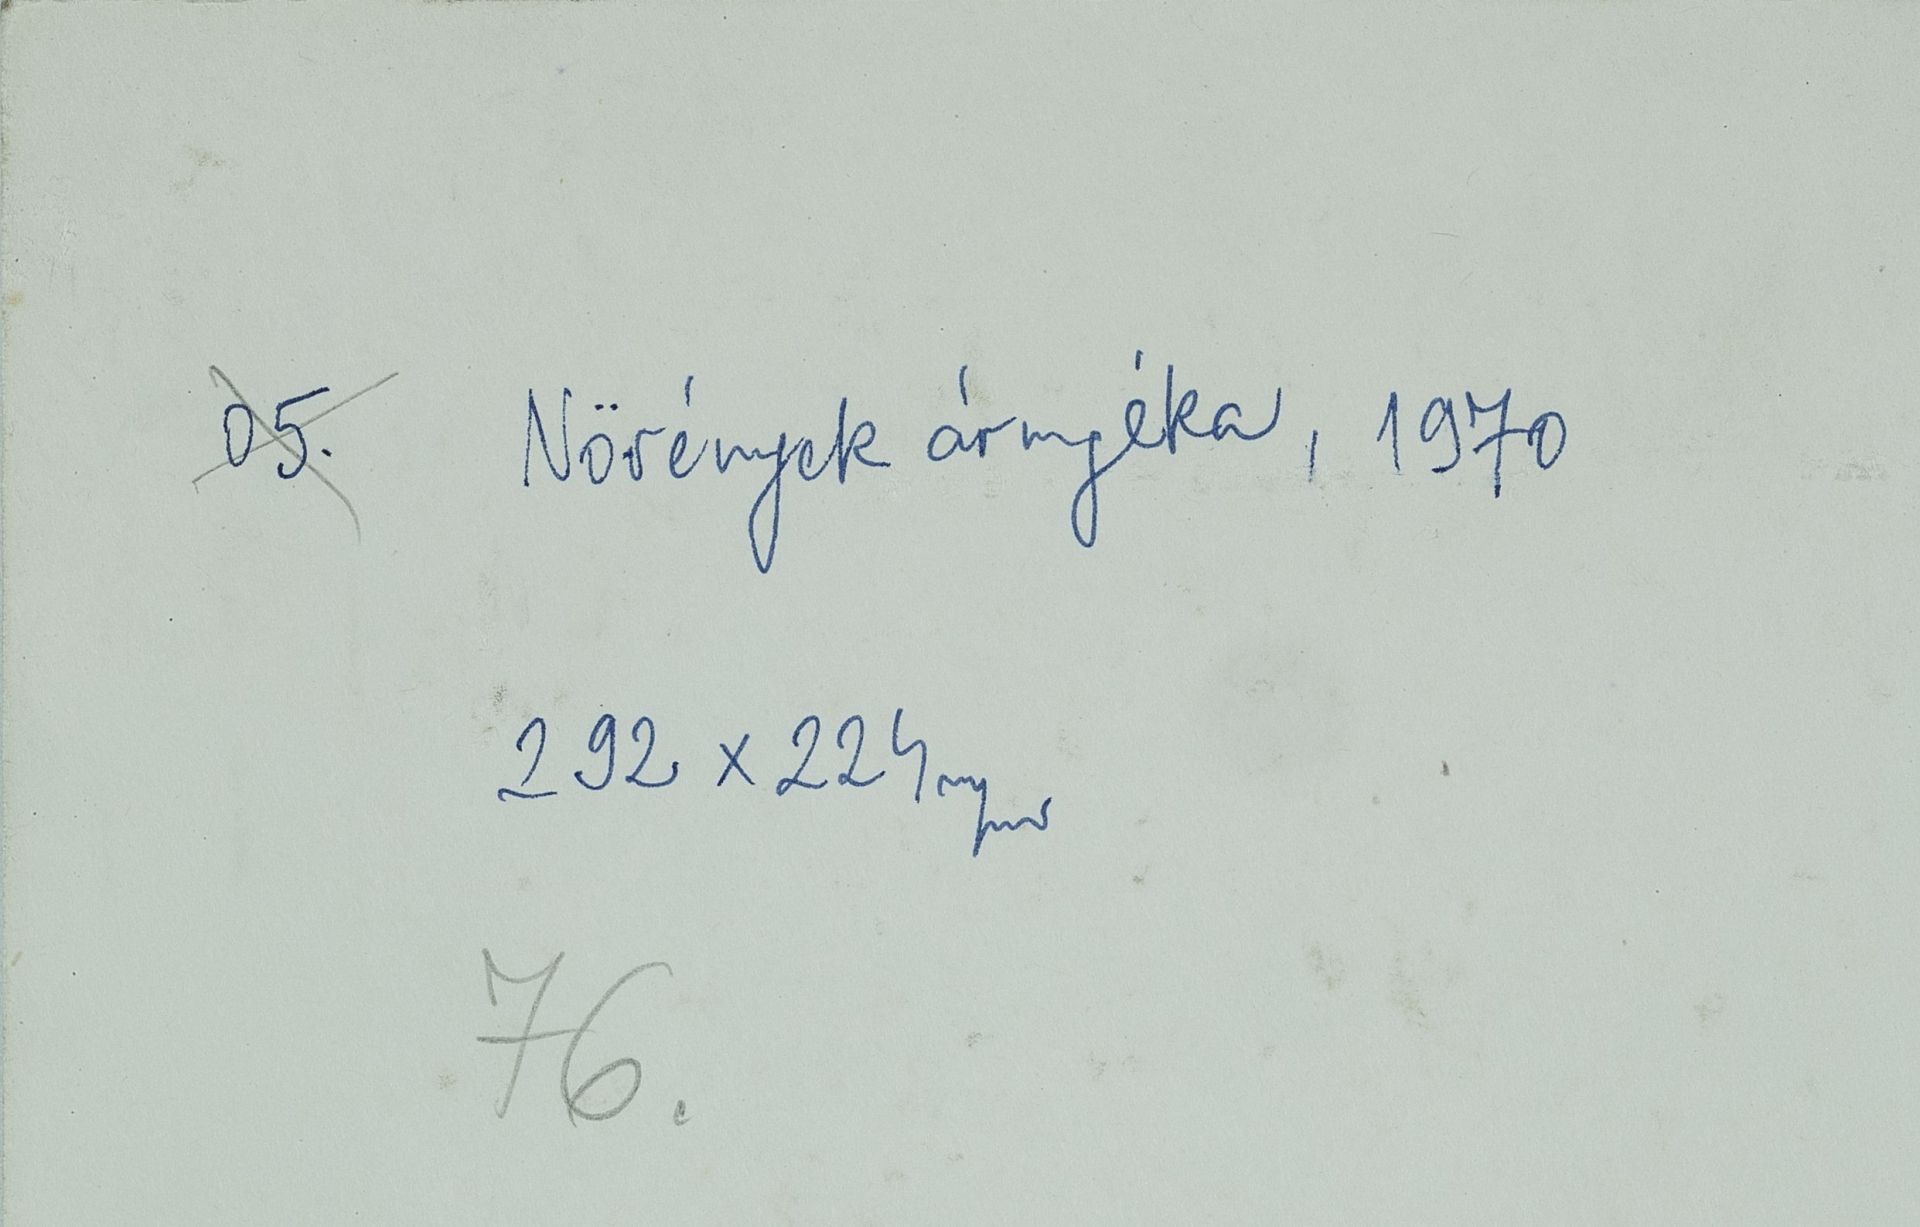 05. Növények árnyéka, 1970
292 x 224
76.